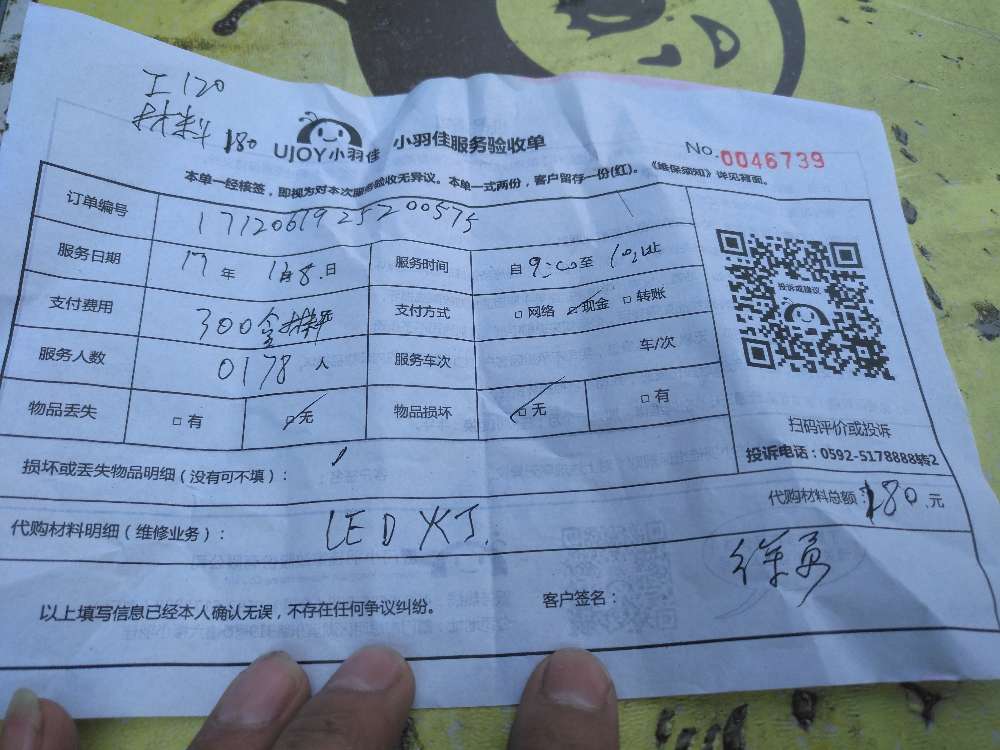 工120
材料180
UJOY小羽佳 小羽佳服务验收单 No.0046739
本单一经核签，即视为对本次服务验收无异议。本单一式两份，客户留存一份(红)。《维保须知》详见背面。
订单编号 1712061925200575
服务日期 17年 12月8日 服务时间 自9:00至
支付费用 300含材料 支付方式 □网络 □现金 □转账
服务人数 0178人 服务车次 车/次
物品丢失 □有 □无 物品损坏 □无 □有
投诉或建议
扫码评价或投诉
投诉电话：0592-5178888转2
损坏或丢失物品明细（没有可不填）：
代购材料明细（维修业务）： LED 灯. 代购材料总额：180元
以上填写信息已经本人确认无误，不存在任何争议纠纷。 客户签名：